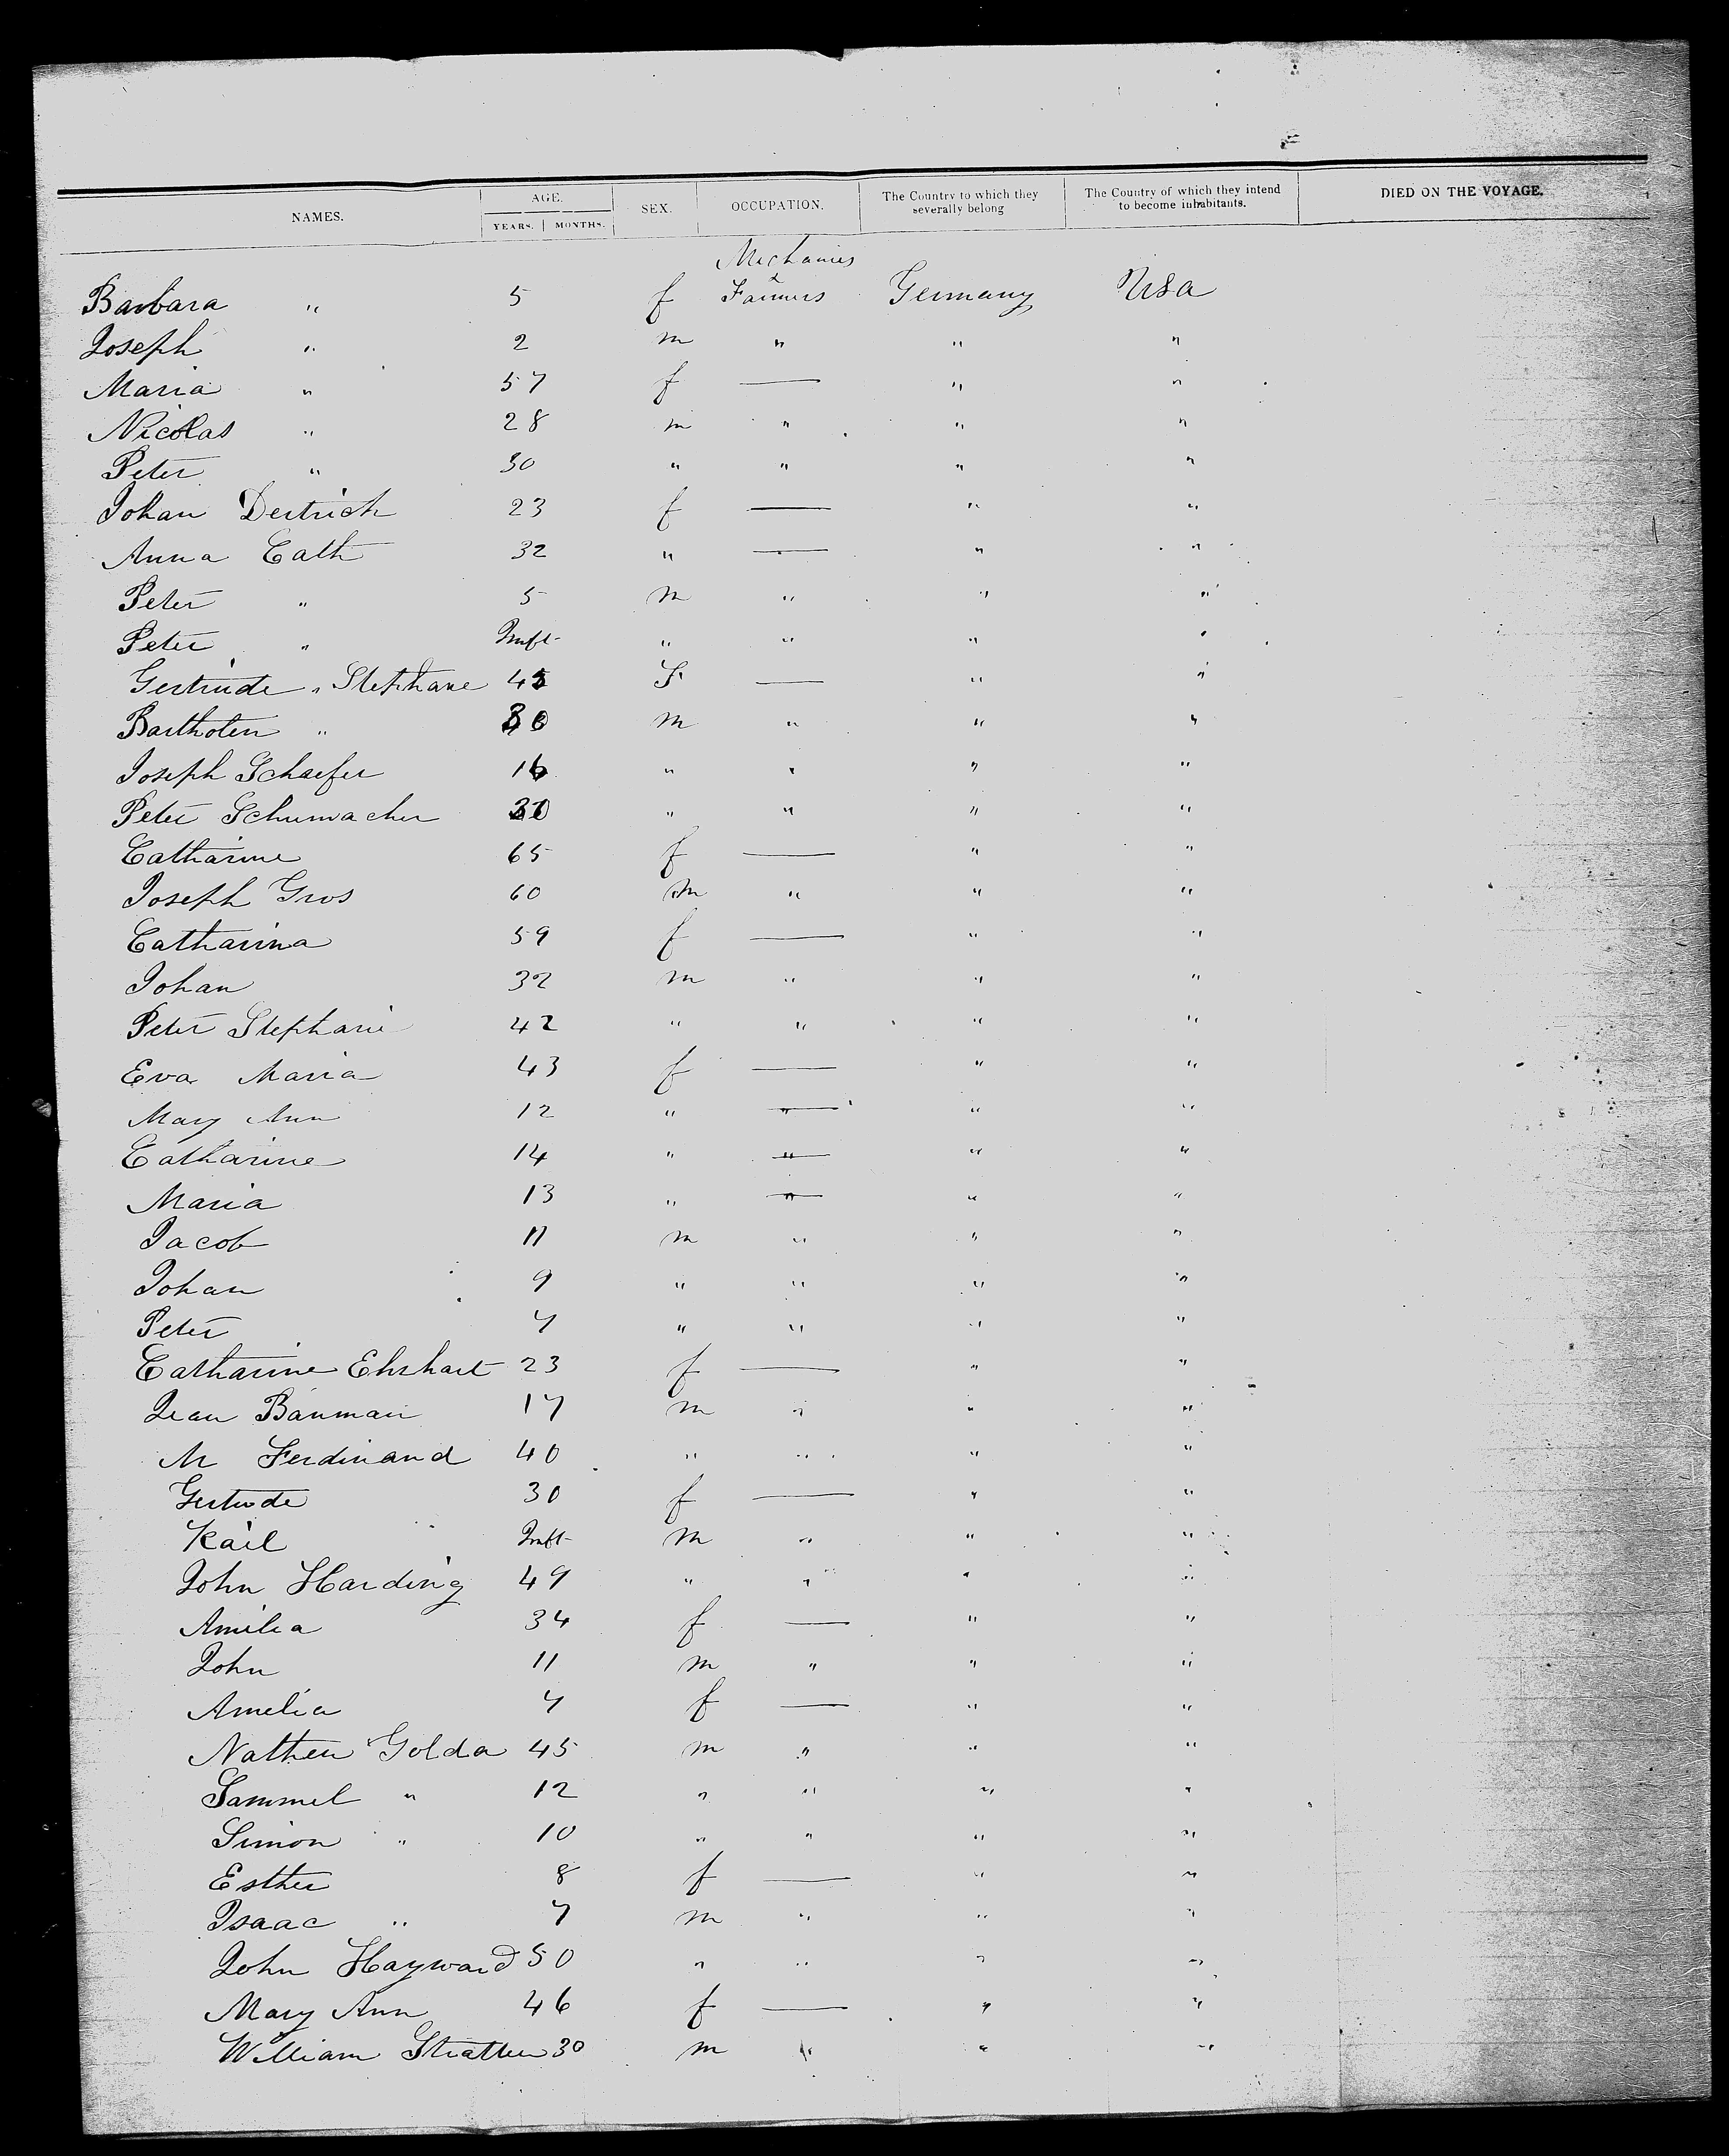 NAMES. AGE. YEARS. MONTHS. SEX. OCCUPATION. The Country to which they severally belong The Country of which they intend to become inhabitants. DIED ON THE VOYAGE.
Mechanics
Barbara " 5 f Farmers Germany USA
Joseph " 2 m " " "
Maria " 57 f — " "
Nicolas " 28 m " " "
Peter " 30 " " " "
Johan Dertrich 23 f — " "
Anna Cath 32 " — " "
Peter " 5 m " " "
Peter " Inft " " " "
Gertrude " Stephane 45 F — " "
Bartholen " 30 m " " "
Joseph Schaefer 16 " " " "
Peter Schumacher " " " "
Catharine 65 f — " "
Joseph Gros 60 m " " "
Catharina 59 f — " "
Johan 32 m " " "
Peter Stephanie 42 " " " "
Eva Maria 43 f — " "
Mary Ann 12 " — " "
Catharine 14 " — " "
Maria 13 " — " "
Jacob 11 m " " "
Johan 9 " " " "
Peter 7 " " " "
Catharine Ehrhart 23 f — " "
Jean Bauman 17 m " " "
M Ferdinand 40 " " " "
Gertrude 30 f — " "
Karl " Inft m " " "
John Harding 49 " " " "
Amilia 34 f — " "
John 11 m " " "
Amelia 7 f — " "
Nathen Golda 45 m " " "
Sammel " 12 " " " "
Simon " 10 " " " "
Esther 8 f — " "
Isaac " 7 m " " "
John Hayward 50 " " " "
Mary Ann 46 f — " "
William Stratten 30 m " " "